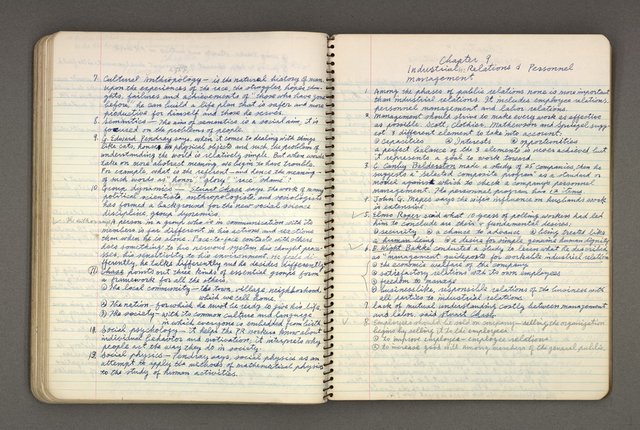 7. Cultural Anthropology - is the natural history of man
upon the experiences of the race, the struggles, hopes, thoughts, failures and achievements of those who have gone
before, he can build a life plan that is safer and more
productive for himself and those he serves.
8. Semantics - The aim of semantics is a social aim. It is
focused on the problems of people.
9. G. Edward Pendray says, when it comes to dealing with things
like cats, horses, physical objects and such, the problem of
understanding the world is relatively simple. But when words
take on more abstract meaning, we begin to have trouble.
For example, what is the referent - and hence the meaning -
of such words as "honor" "glory" "race" "shame"?
10. Group dynamics - Stuart Chase says the work of many
political scientists, anthropologists and sociologists
has formed a background for the new social science
discipline, group dynamics.
A person in a group who is in communication with its
members is far different in his actions and reactions
than when he is alone. Face-to-face contacts with others
does something to his nervous system, his thought processes, his sensitivity to his environment. He feels differently, he talks differently and he decides differently
11. Chase points out three kinds of essential groups form
a framework for all the others.
① The local community - the town, village, neighborhood
which we call home.
② The nation - for which he must be ready to give his life
③ The society - with its common culture and language
in which everyone is embedded from birth
12. Social psychology - it helps the PR workers know about
individual behavior and motivation; it interprets why
people act the way they do in society.
13. Social physics - Pendray says, social physics is an
attempt to apply the methods of mathematical physics
to the study of human activities.
Chapter 9
Industrial Relations & Personnel
Management
1. Among the phases of public relations none is more important
than industrial relations. It includes employee relations,
personnel management and labor relations.
2. Management should strive to make every work as effective
as possible. Scott, Clothier, Mathewson and Spriegel suggest 3 different element to take into account:
① capacities ② Interests ③ opportunities
a perfect balance of the 3 elements is never achieved but
it represents a goal to work toward.
3. C. Canby Balderston made a study of 25 companies, then he
suggests a "selected composite program" as a standard or
model against which to check a company's personnel
management. The personnel program has 14 items.
4. John G. Mapes says the wife's influence on husband's work
is extensive.
5. Elmo Roper said what 10 years of polling workers had led
him to conclude are their 4 fundamental desires.
① security ② a chance to advance ③ being treated like
a human being ④ a desire for simple, genuine human dignity
6. E. Wight Bakke conducted a study to learn what he described
as "management guideposts for workable industrial relations
① the economic welfare of the company
② satisfactory relations with its own employees
③ freedom to manage
④ businesslike, responsible relations of the business with
all parties to industrial relations.
7. Lack of mutual understanding costly between management
and labor, said Stuart Chase.
8. Employees should be sold on company - selling the organization
begins by selling it to the employees!
① to improve employer-employee relations
② to increase good will among members of the general public